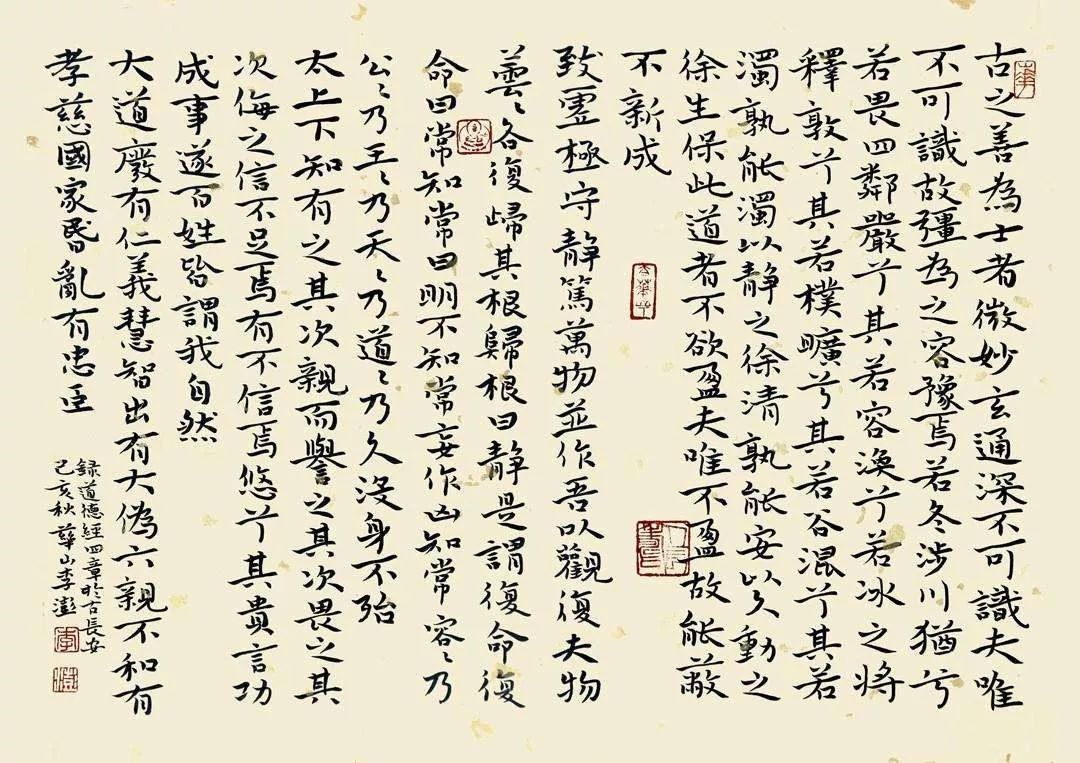 古之善為士者微妙玄通深不可識夫唯
不可識故彊為之容豫焉若冬涉川猶兮
若畏四鄰嚴兮其若容渙兮若冰之將
釋敦兮其若樸曠兮其若谷混兮其若
濁孰能濁以靜之徐清孰能安以久動之
徐生保此道者不欲盈夫唯不盈故能蔽
不新成
致虛極守靜篤萬物並作吾以觀復夫物
蕓〻各復歸其根歸根曰靜是謂復命復
命曰常知常曰明不知常妄作凶知常容〻乃
公〻乃王〻乃天〻乃道〻乃久沒身不殆
太上下知有之其次親而譽之其次畏之其
次侮之信不足焉有不信焉悠兮其貴言功
成事遂百姓皆謂我自然
大道廢有仁義慧智出有大偽六親不和有
孝慈國家昏亂有忠臣
錄道德經四章於古長安
己亥秋山李澎